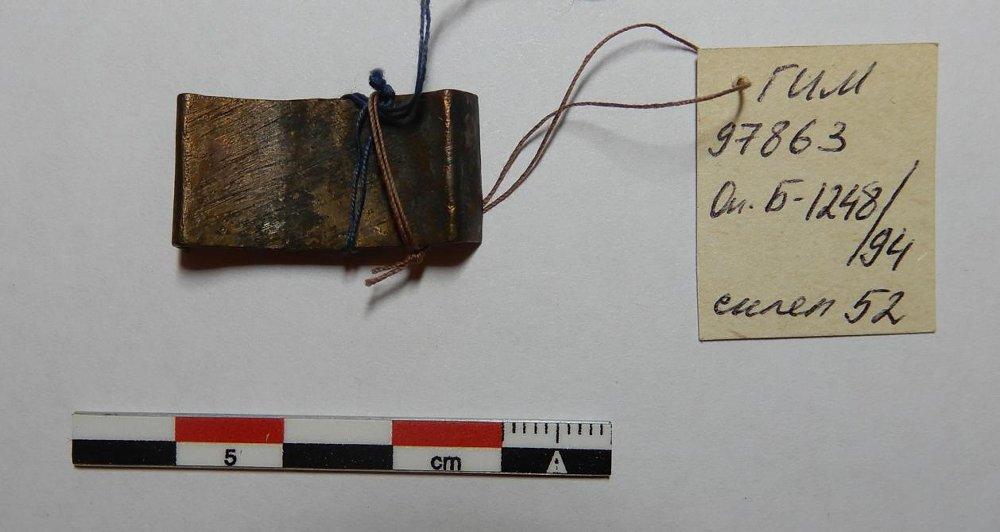 ГИМ
97863
Оп. Б-1248/
/94
склеп 52
5
cm